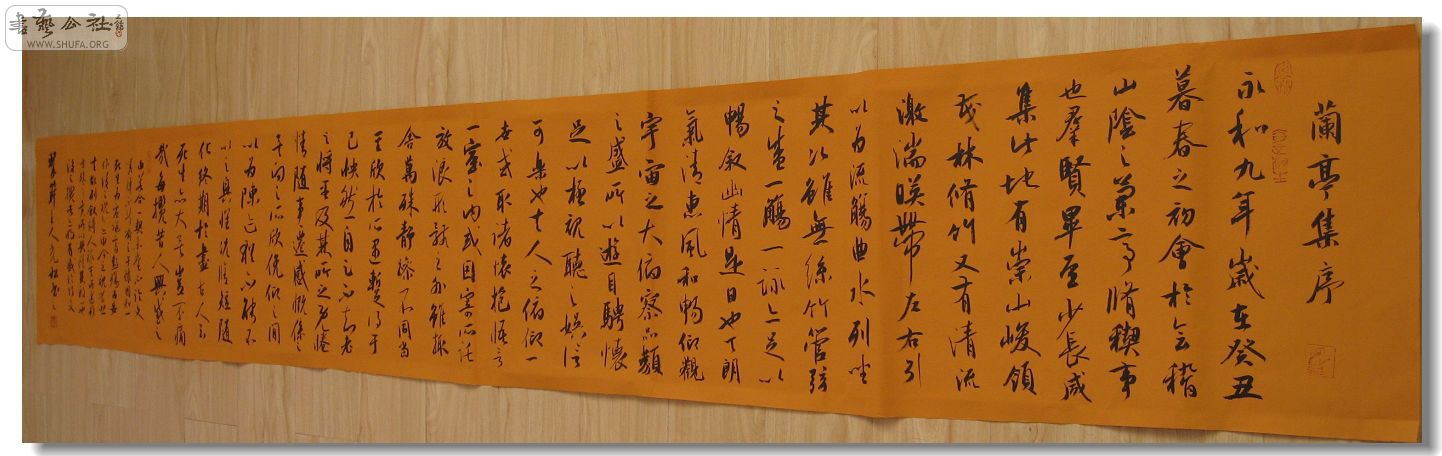 書藝公社
WWW.SHUFA.ORG
蘭亭集序
永和九年歲在癸丑
暮春之初會於會稽
山陰之蘭亭脩稧事
也羣賢畢至少長咸
集此地有崇山峻領
茂林脩竹又有清流
激湍暎帶左右引
以為流觴曲水列坐
其次雖無絲竹管弦
之盛一觴一詠亦足以
暢叙幽情是日也天朗
氣清惠風和暢仰觀
宇宙之大俯察品類
之盛所以遊目騁懷
足以極視聽之娛信
可樂也夫人之俯仰一
世或取諸懷抱悟言
一室之內或因寄所託
放浪形骸之外雖趣
舍萬殊靜躁不同當
其欣於所遇暫得於
己怏然自足不知老
之將至及其所之既惓
情隨事遷感慨係之
向之所欣俛仰之間
以為陳迹猶不能不
以之興懷況脩短隨
化終期於盡古人云
死生亦大矣豈不痛
哉每攬昔人興感之